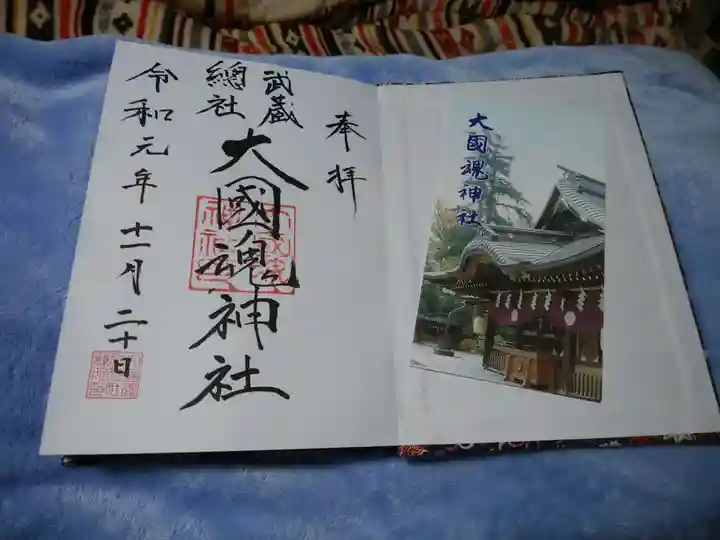 奉拝
武蔵
總社
大國魂神社
令和元年十一月二十日
大國魂神社